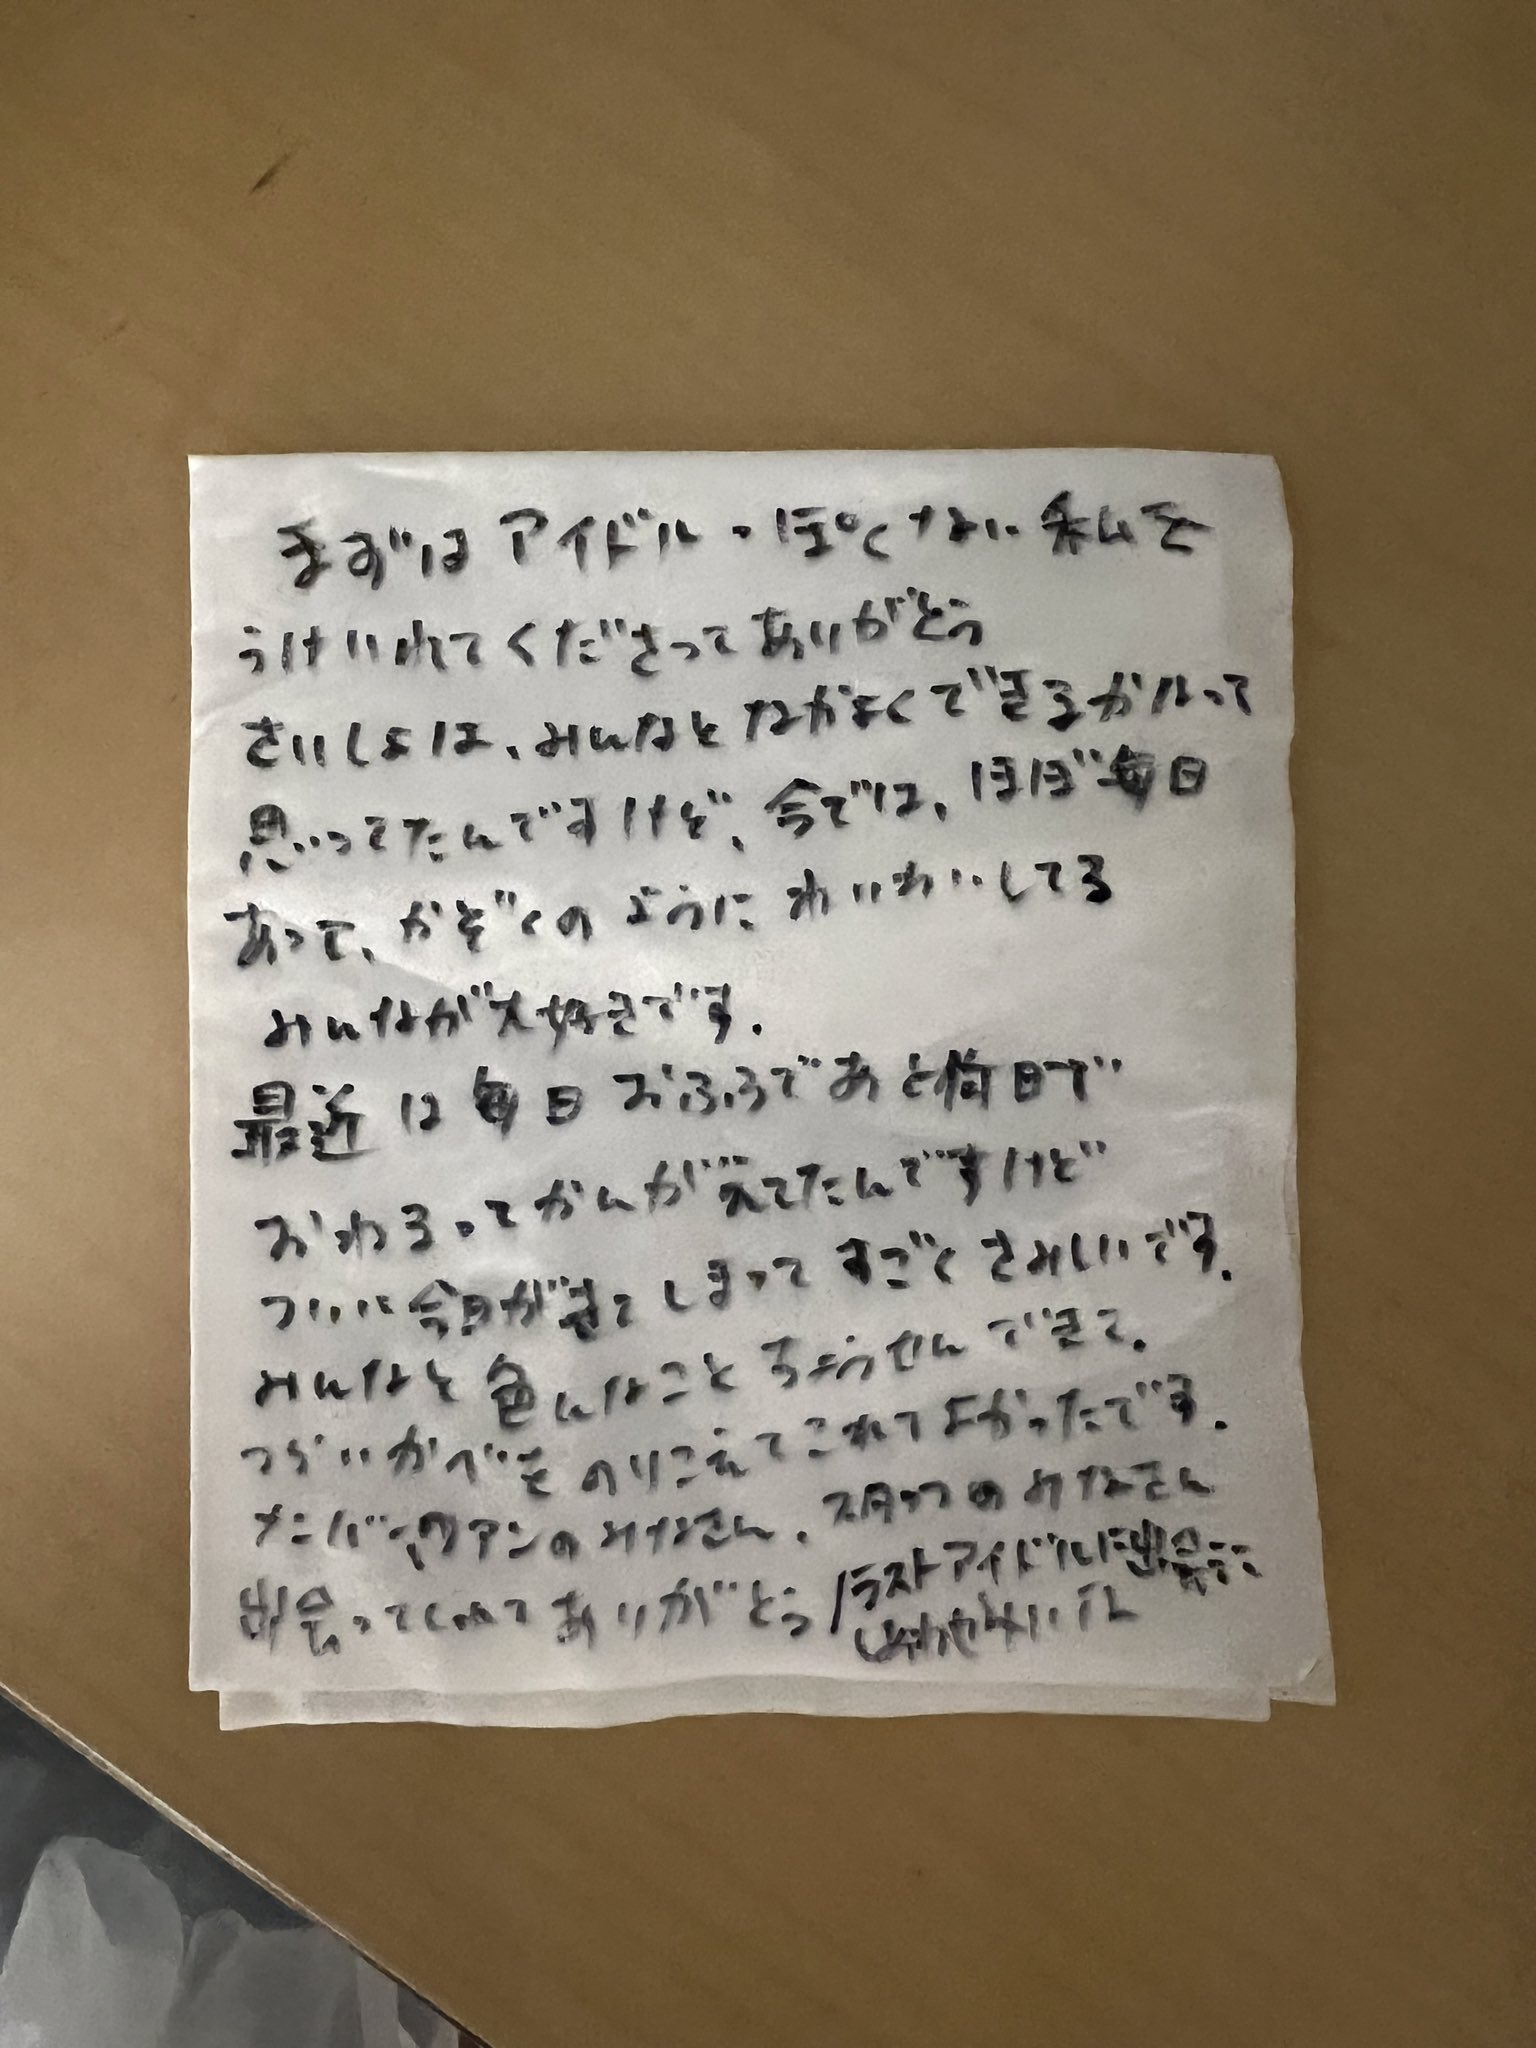 まずは アイドルっぽくない 私を
うけいれてくださってありがどう
さいしょは、みんなと なかよくできるかルって
思ってたんですけど、今では、ほぼ毎日
あって、かぞくの ように わいわいしてる
みんなが大好きです.
最近は毎日 おふろであと何日で
おわるってかんがえてたんですけど
ついに今日がきてしまって すごく さみしいです.
みんなと 色んなこと ちょうせんできて.
つらいかべをのりこえてこれてよかったです.
メンバー、ファンのみなさん、スタッフのみなさん
出会ってくれてありがどう /ラストアイドルに出会えて